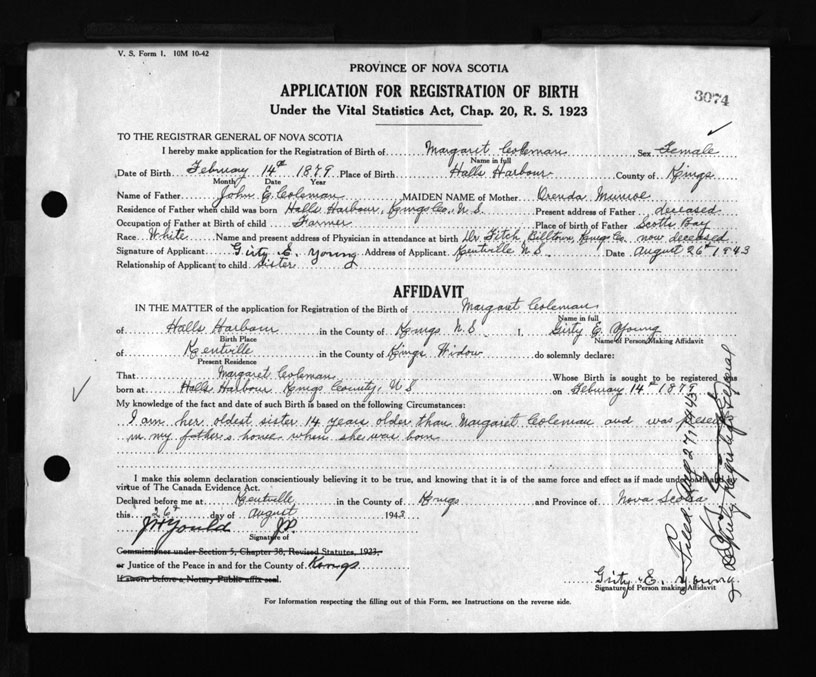 V. S. Form 1. 10M 10-42
PROVINCE OF NOVA SCOTIA
APPLICATION FOR REGISTRATION OF BIRTH
Under the Vital Statistics Act, Chap. 20, R. S. 1923
3074
TO THE REGISTRAR GENERAL OF NOVA SCOTIA
I hereby make application for the Registration of Birth of Margaret Coleman Sex Female
Name in full
Date of Birth Febuary 14th 1879 Place of Birth Halls Harbour County of Kings
Month Date Year
Name of Father John E. Coleman MAIDEN NAME of Mother Orenda Munroe
Residence of Father when child was born Halls Harbour, Kings Co. N. S. Present address of Father deceased
Occupation of Father at Birth of child Farmer Place of birth of Father Scotts Bay
Race White Name and present address of Physician in attendance at birth Dr Fitch, Billtown, Kings Co. now deceased
Signature of Applicant Girty E. Young Address of Applicant Kentville N. S. Date August 26th 1943
Relationship of Applicant to child Sister
AFFIDAVIT
IN THE MATTER of the application for Registration of the Birth of Margaret Coleman
Name in full
of Halls Harbour in the County of Kings N. S I, Girty E. Young
Birth Place Name of Person Making Affidavit
of Kentville in the County of Kings Widow do solemnly declare:
Present Residence
That Margaret Coleman Whose Birth is sought to be registered was
born at Halls Harbour Kings County, N. S on Febuary 14th 1879
My knowledge of the fact and date of such Birth is based on the following Circumstances:
I am her oldest sister 14 years older than Margaret Coleman and was present
in my father's house when she was born
I make this solemn declaration conscientiously believing it to be true, and knowing that it is of the same force and effect as if made under oath and by
virtue of The Canada Evidence Act.
Declared before me at Kentville in the County of Kings and Province of Nova Scotia
this 26th day of August 1943
J.P.
Signature of
Commissioner under Section 5, Chapter 38, Revised Statutes, 1923,
or Justice of the Peace in and for the County of Kings
If sworn before a Notary Public affix seal.
Girty E. Young
Signature of Person making Affidavit
For Information respecting the filling out of this Form, see Instructions on the reverse side.
Filed Aug 27, 1943
Deputy Registrar General